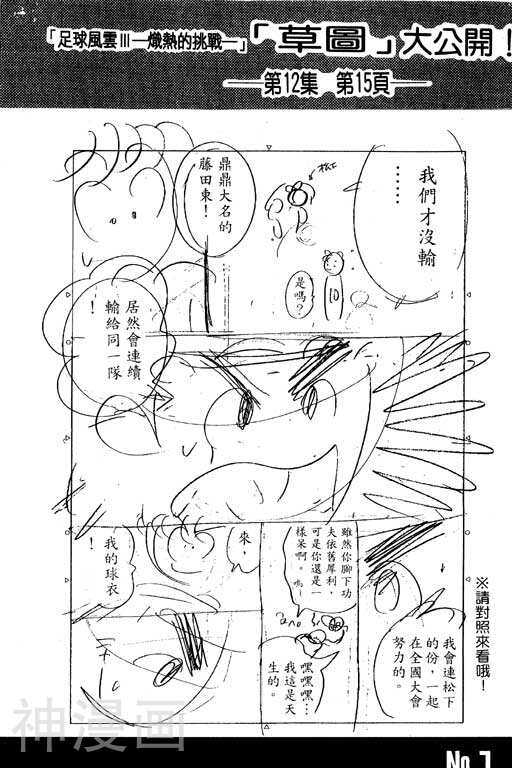 「足球風雲Ⅲ—熾熱的挑戰—」「草圖」大公開！
——第12集 第15頁——
我們才沒輸
……
松下
是嗎？
10
鼎鼎大名的
藤田東！
居然會連續
輸給同一隊
！
雖然你腳下功
夫依舊犀利，
可是你還是一
樣呆啊。
嘿嘿嘿…
我這是天
生的。
來，
我的球衣
！
我會連松下
的份，一起
在全國大會
努力的。
※請對照來看哦！
神漫画
No.1